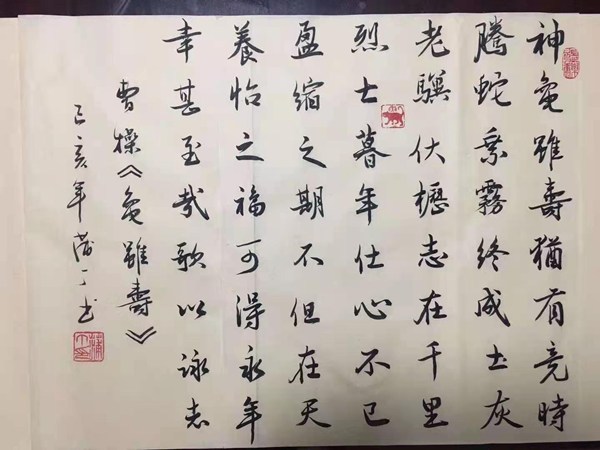 神龟雖壽猶有竟時
騰蛇乘霧終成土灰
老驥伏櫪志在千里
烈士暮年仕心不已
盈縮之期不但在天
養怡之福可得永年
幸甚至哉歌以詠志
曹操《龟雖壽》
己亥年蒲丁书